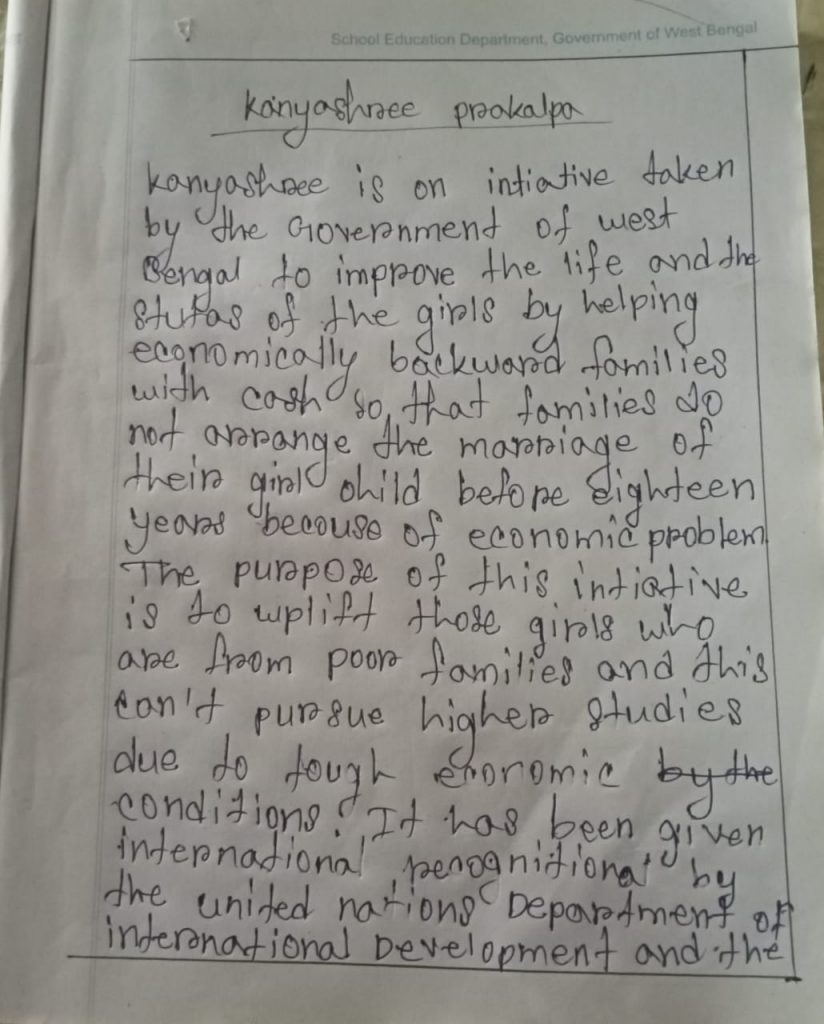 School Education Department, Government of West Bengal
Kanyashree prakalpa
Kanyashree is on intiative taken
by the Government of west
Bengal to improve the life and the
stutas of the girls by helping
economically backward families
with cash so, that families do
not arrange the marriage of
their girl child before Eighteen
years becouse of economic problem
The purpose of this intiative
is to uplift those girls who
are from poor families and this
can't pursue higher studies
due to tough economic by the
conditions. It has been given
international recognitional by
the united nations Department of
international Development and the